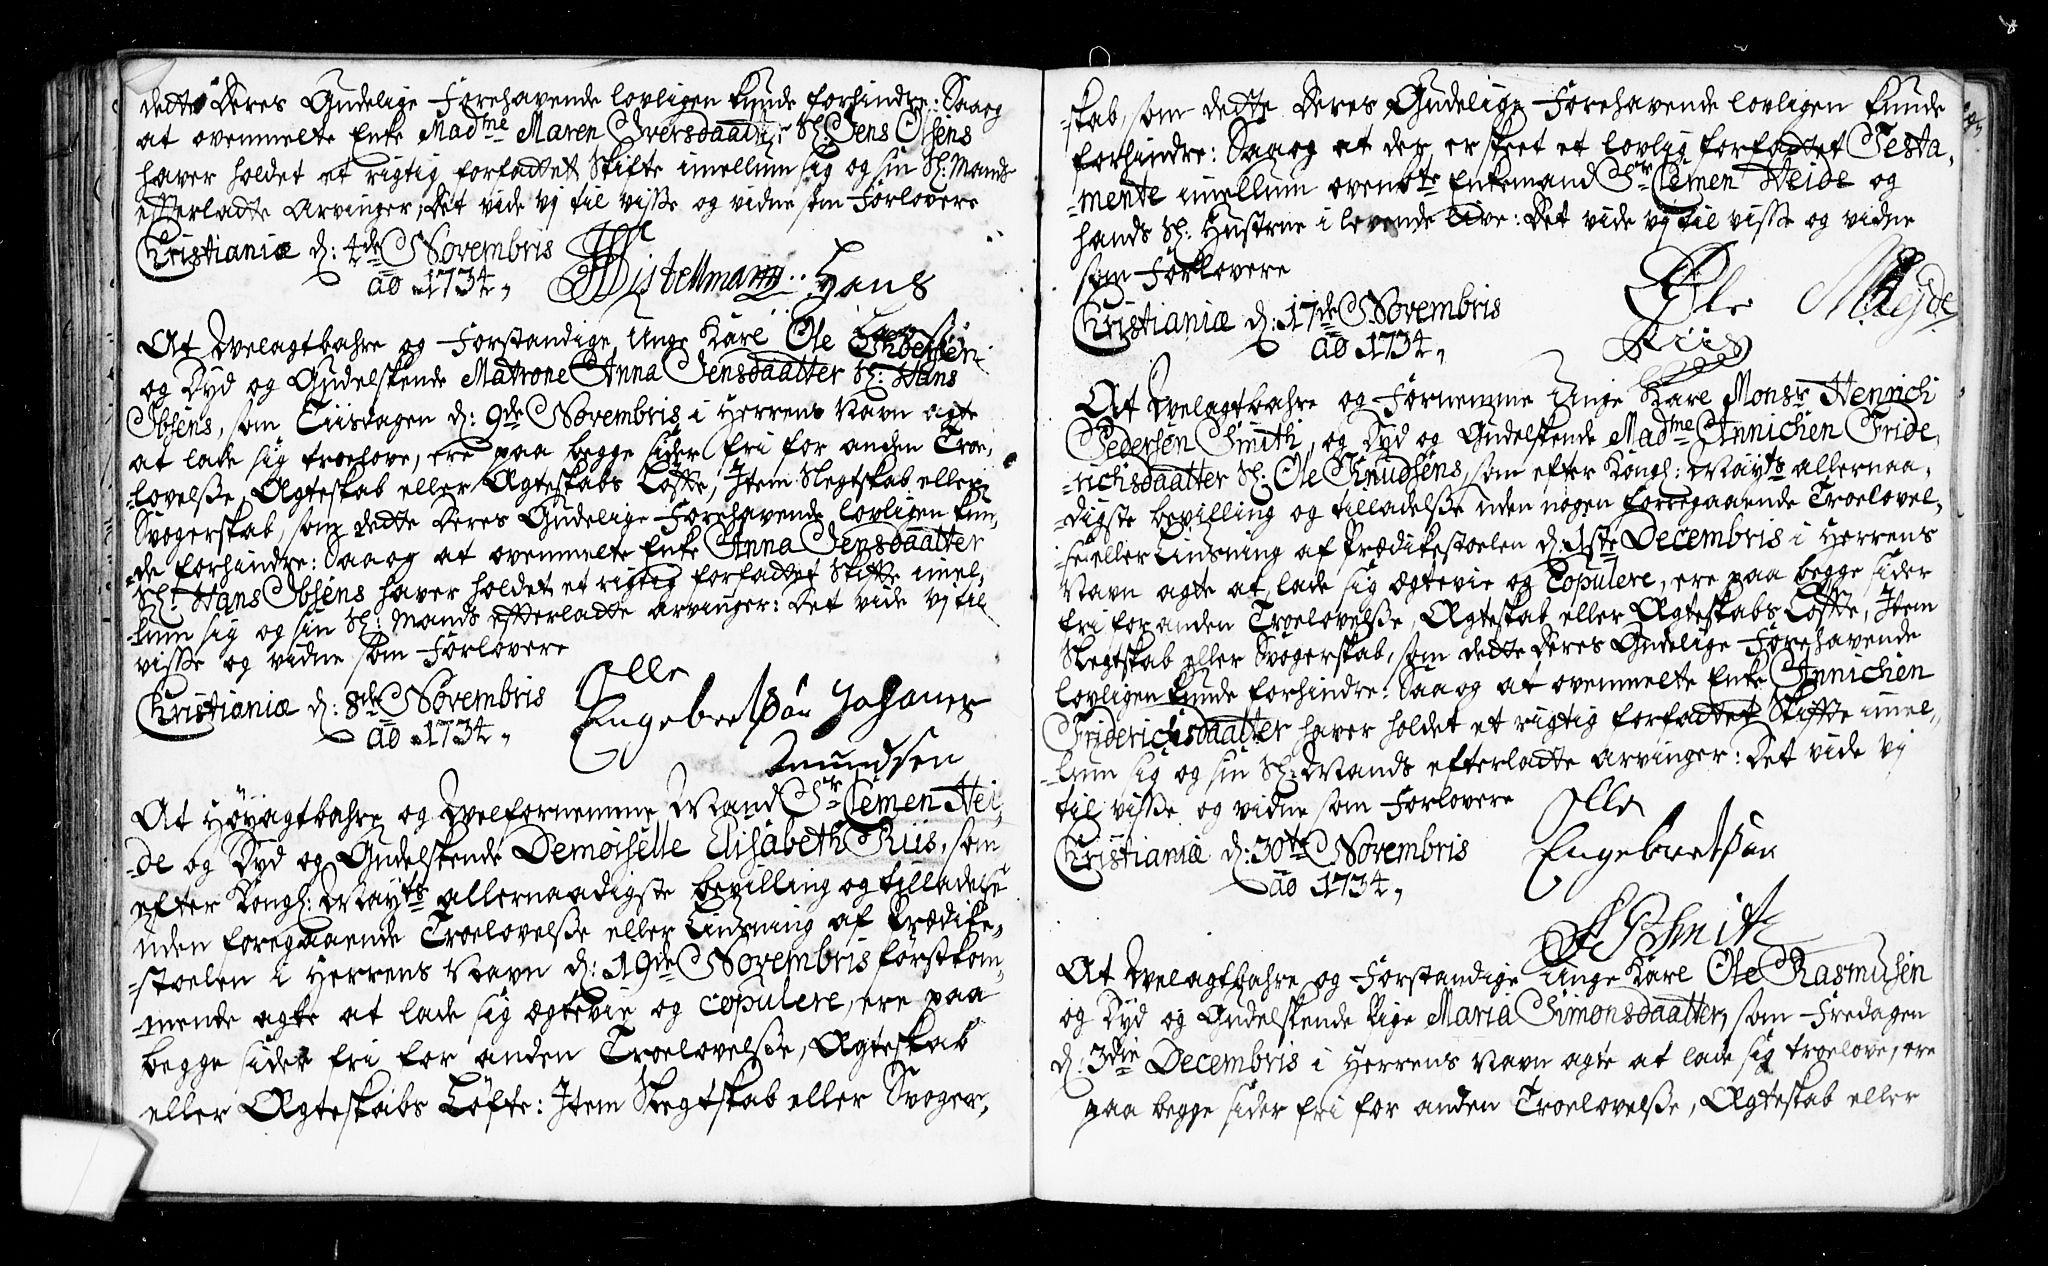 dette deres Gudelige Forehavende lovligen kunde forhindre: Saa og
at ovenmelte Enke Madme Maren Iversdaatter Sl: Jens Olsens
haver holdet et rigtig forfattet Skifte imellum sig og sin Sl: Mands
efterladte Arvinger, Det vide vj til visse og vidne som Forlovere
Christianiæ d: 4de Novembris
ao 1734,
Distellmann
Hans
At Dvelagtbahre og Forstandige Unge Karl Ole
og Dyd og Gudelskende Matrone Anna Jensdaatter Sl: Hans
Ibsens, som Tiisdagen d: 9de Novembris i Herrens Navn agte
at lade sig troelove, ere paa begge sider fri for anden Troe-
-lovelsse, Ægteskab eller Ægteskabs Løfte, Item Slegtskab eller
Svogerskab, som dette deres Gudelige Forehavende lovligen kun-
-de forhindre: Saa og at ovenmelte Enke Anna Jensdaatter
Sl: Hans Ibsens haver holdet et rigtig forfattet Skifte imel-
-lum sig og sin Sl: Mands efterladte arvinger: Det vide vj til
visse og vidne som Forlovere
Christianiæ d: 8de Novembris
ao 1734,
Olle
Engebretsøn Johannes
Amundsen
At Höyagtbahre og Dvelfornemme Mand Sr Clemen Hei-
-de og Dyd og Gudelskende Demoiselle Elisabeth Riis, som
efter Kongl: Mayts allernaadigste bevilling og tilladelse
uden foregaaende Troelovelsse eller Liusning af Prædike-
-stoelen i Herrens Navn d: 19de Novembris førstkom-
-mende agte at lade sig ægtevie og copulere, ere paa
begge sider fri for anden Troelovelsse, Ægteskab
eller Ægteskabs Løfte: Item Slegtskab eller Svoger-
-skab, som dette deres Gudelige Forehavende lovligen kunde
forhindre: Saa og at der er skeet et lovlig forfattet Testa-
-mente imellum ovenbte Enkemand Sr Clemen Heide og
hands Sl: Hustrue i levende live: Det vide vj til visse og vidne
som Forlovere
Christianiæ d: 17de Novembris
ao 1734,
Ole
Riis
MHeyde
At Dvelagtbahre og Fornemme Unge Karl Monsr Henrich
Pedersøn Smith, og Dyd og Gudelskende Madme Annichen Fride-
-richsdaatter Sl: Ole Knudsens, som efter Kongl: Mayts allernaa-
-digste bevilling og tilladelsse uden nogen forregaaende Troelovel-
-se eller Liusning af Prædikestoelen d: 1ste Decembris i Herrens
Navn agte at lade sig ægtevie og Copulere, ere paa begge sider
fri for anden Troelovelsse, Ægteskab eller Ægteskabs Løfte, Item
Slegtskab eller Svogerskab, som dette deres Gudelige Forehavende
lovligen kunde forhindre: Saa og at ovenmelte Enke Annichen
Friderichsdaatter haver holdet et rigtig forfattet Skifte imel-
-lum sig og sin Sl: Mands efterladte arvinger: Det vide vj
til visse og vidne som Forlovere
Christianiæ d: 30te Novembris
ao 1734,
Olle
Engebretsøn
PSmith
At Dvelagtbahre og Forstandige Unge Karl Ole Rasmusen
og Dyd og Gudelskende Pige Maria Simonsdaatter, som Fredagen
d: 3die Decembris i Herrens Navn agte at lade sig troelove, ere
paa begge sider fri for anden Troelovelsse, Ægteskab eller